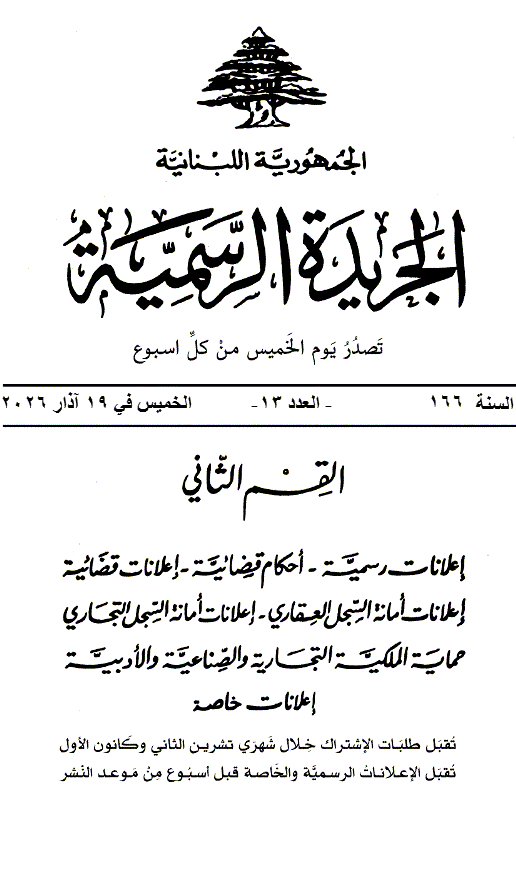 الجمهوريَّة اللبنانيَّة
الجريدة الرسميَّة
تَصدُرُ يَوم الخَميس منْ كلِّ اسبوع
السنة ١٦٦ - العدد ١٣- الخميس في ١٩ آذار ٢٠٢٦
القِسْم الثّاني
إعلانات رسميَّة - أحكام قضائيَّة - إعلانات قضائية
إعلانات أمانة السِّجل العقاري - إعلانات أمانة السِّجل التجاري
حماية الملكيَّة التجارية والصِّناعيَّة والأدبيَّة
إعلانات خاصة
تُقبَل طلبَات الإشتراك خِلال شَهرَي تشرين الثاني وكَانون الأول
تُقبَل الإعلاناتُ الرسميَّة والخَاصة قبل أسبُوع مِنْ مَوعد النَشر